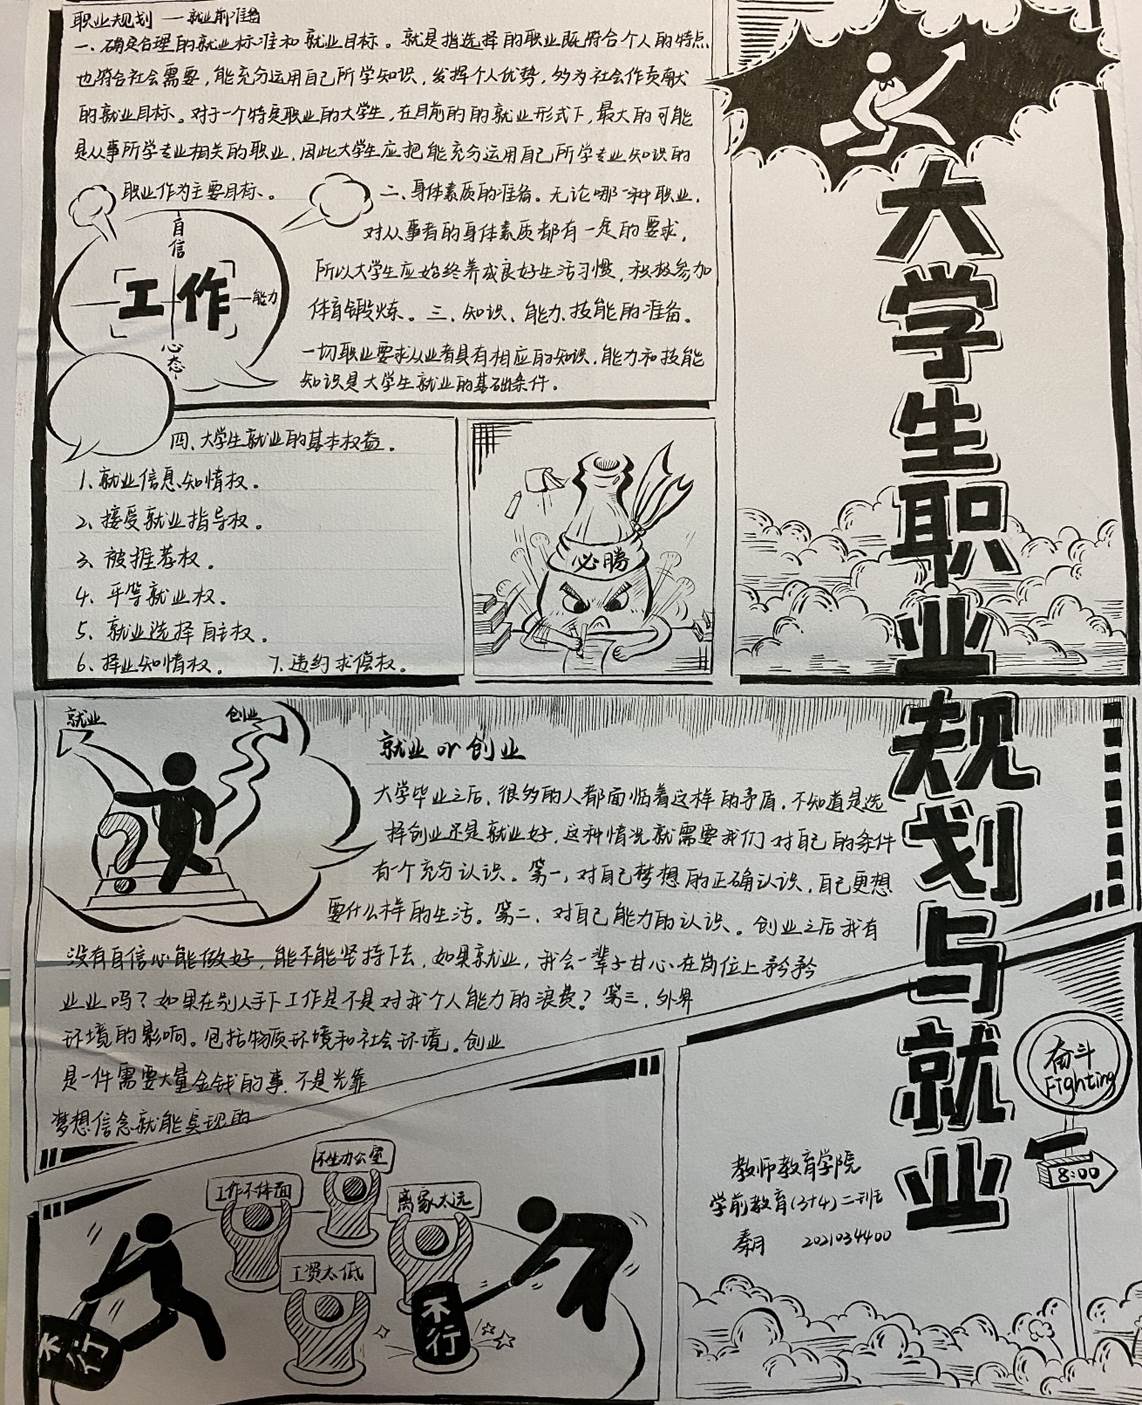 职业规划 —就业前准备
一、确定合理的就业标准和就业目标。就是指选择的职业既符合个人的特点
也符合社会需要，能充分运用自己所学知识，发挥个人优势，够为社会作贡献
的就业目标。对于一个特定职业的大学生，在目前的的就业形式下，最大的可能
是从事所学专业相关的职业，因此大学生应把能充分运用自己所学专业知识的
职业作为主要目标。
二、身体素质的准备。无论哪一种职业，
对从事者的身体素质都有一定的要求，
所以大学生应始终养成良好生活习惯，积极参加
体育锻炼。三、知识、能力、技能的准备。
一切职业要求从业者具有相应的知识，能力和技能
知识是大学生就业的基础条件。
自信
工作
能力
心态
四、大学生就业的基本权益。
1、就业信息知情权。
2、接受就业指导权。
3、被推荐权。
4、平等就业权。
5、就业选择自主权。
6、择业知情权。 7、违约求偿权。
必勝
大学生职业规划与就业
就业
创业
就业 or 创业
大学毕业之后，很多的人都面临着这样的矛盾，不知道是选
择创业还是就业好，这种情况就需要我们对自己的条件
有个充分认识。第一，对自己梦想的正确认识，自己更想
要什么样的生活。第二、对自己能力的认识。创业之后我有
没有自信心能做好，能不能坚持下去，如果就业，我会一辈子甘心在岗位上矜矜
业业吗？如果在别人手下工作是不是对我个人能力的浪费？第三，外界
环境的影响。包括物质环境和社会环境。创业
是一件需要大量金钱的事，不是光靠
梦想信念就能实现的
不坐办公室
工作不体面
离家太远
工资太低
不行
不行
奋斗
Fighting
8:00
教师教育学院
学前教育(3+4)二班
秦月 2021034400